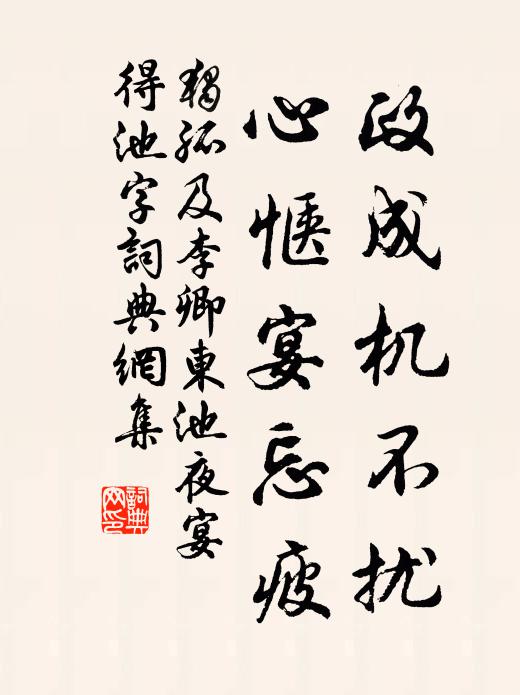 政成机不扰
心惬宴忘疲
獨孤及李卿東池夜宴
得池字詞典網集
詞典
网印